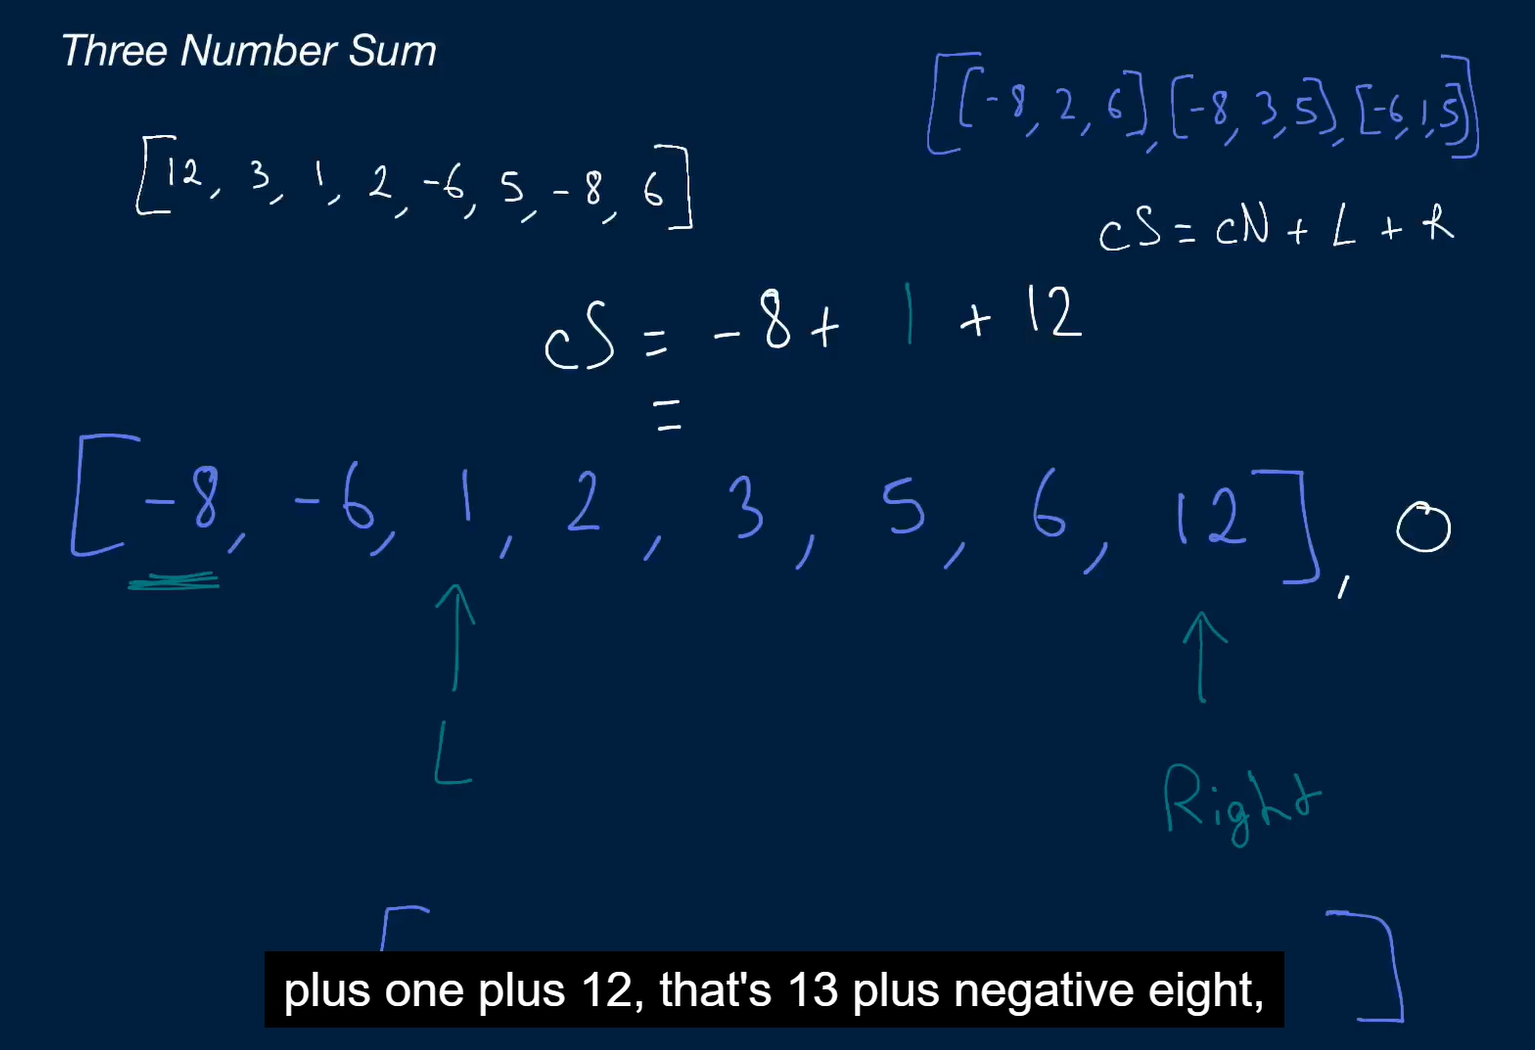 Three Number Sum
[[-8, 2, 6], [-8, 3, 5], [-6, 1, 5]]
[12, 3, 1, 2, -6, 5, -8, 6]
cS = cN + L + R
cS = -8 + 1 + 12
=
[-8, -6, 1, 2, 3, 5, 6, 12], 0
L
Right
[ ]
plus one plus 12, that's 13 plus negative eight,